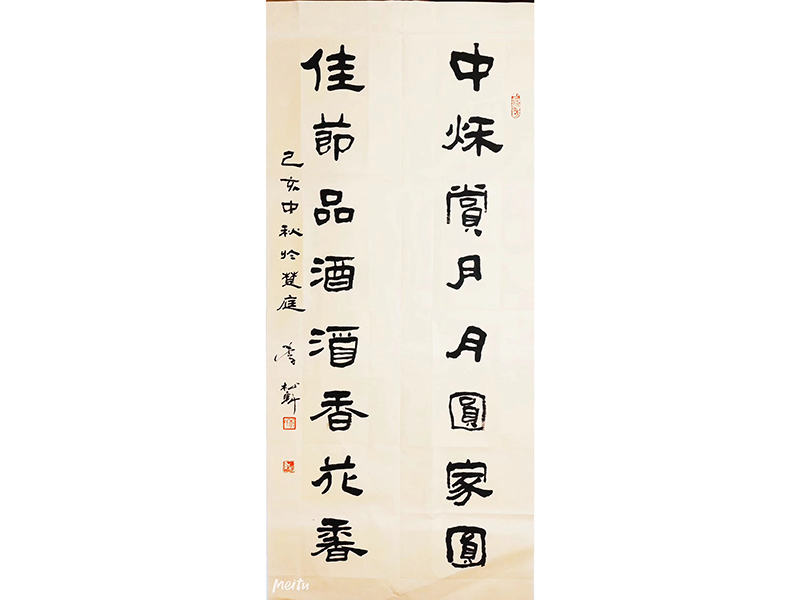 中秌賞月月圓家圓
佳節品酒酒香花香
己亥中秋於楚庭
Meitu